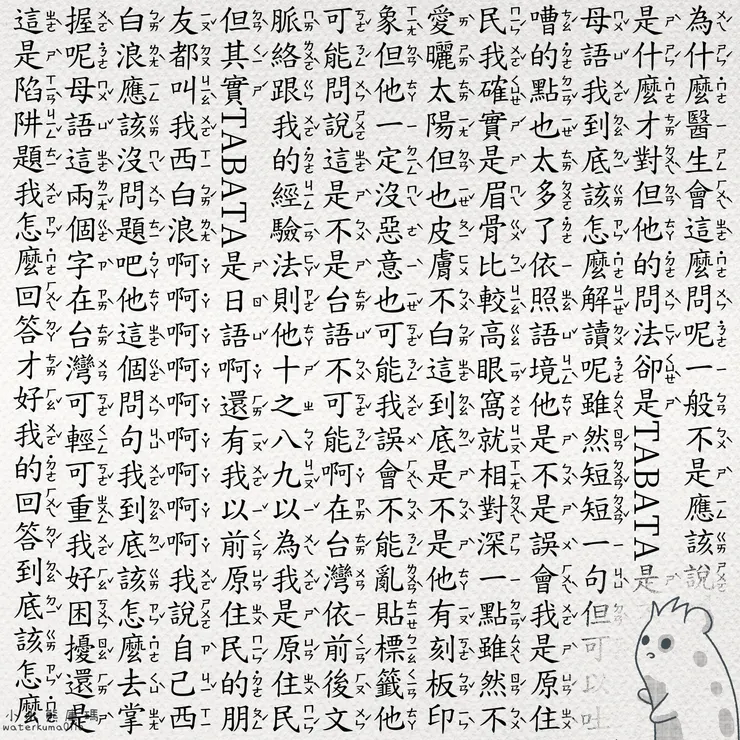 為什麼醫生會這麼問呢一般不是應該說
是什麼才對但他的問法卻是TABATA是
母語我到底該怎麼解讀呢雖然短短一句但可以吐
嘈的點也太多了依照語境他是不是誤會我是原住
民我確實是眉骨比較高眼窩就相對深一點雖然不
愛曬太陽但也皮膚不白這到底是不是他有刻板印
象但他一定沒惡意也可能我誤會不能亂貼標籤他
可能問說這是不是台語不可能啊在台灣依前後文
脈絡跟我的經驗法則他十之八九以為我是原住民
但其實TABATA是日語啊還有我以前原住民的朋
友都叫我西白浪啊啊啊啊啊啊啊啊啊我說自己西
白浪應該沒問題吧他這個問句我到底該怎麼去掌
握呢母語這兩個字在台灣可輕可重我好困擾還是
這是陷阱題我怎麼回答才好我的回答到底該怎麼